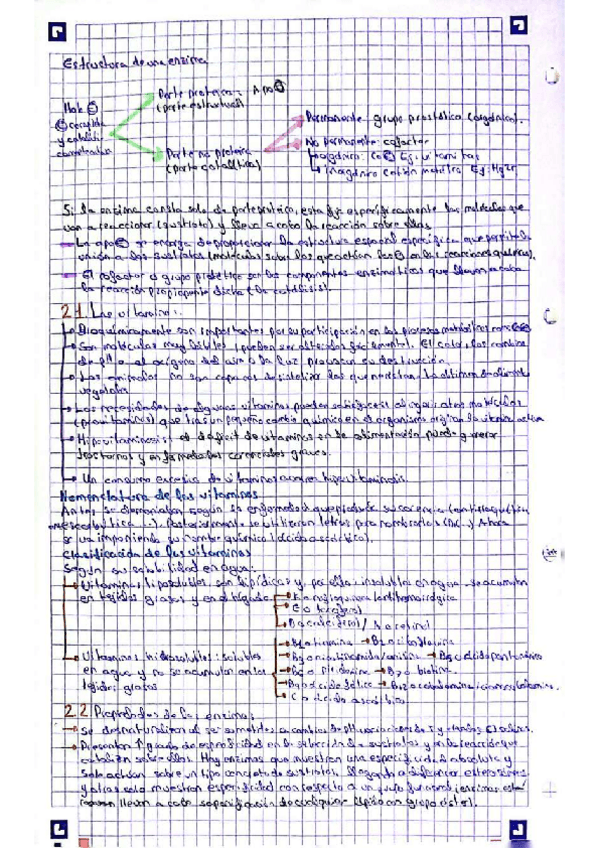 Estructura de una enzima
Parte proteica: Apo Ⓔ
(parte estructural)
Holo Ⓔ
y catalíti.
Parte no proteica
(parte catalítica)
Permanente: grupo prostético (orgánico).
No permanente: cofactor
Orgánico: Co Ⓔ Ej: vitaminas
Inorgánico catión metálico Ej: Mg2+
Si la enzima consta solo de parte proteica, esta fija específicamente las moléculas que
van a reaccionar (sustrato) y lleva a cabo la reacción sobre ellas
La apo Ⓔ se encarga de proporcionar la estructura espacial específica que permite la
unión a los sustratos (moléculas sobre las que actúan las Ⓔ en las reacciones químicas).
El cofactor o grupo prostético son los componentes enzimáticos que llevan a cabo
la reacción propiamente dicha (la catálisis).
2.1. Las vitaminas:
Bioquímicamente son importantes por su participación en los procesos metabólicos como
Son moléculas muy lábiles (pueden ser alteradas fácilmente). El calor, los cambios
de pH o el oxígeno del aire o la luz provocan su destrucción.
Los animales no son capaces de sintetizar las que necesitan. La obtienen de
vegetales
Las necesidades de algunas vitaminas pueden satisfacerse al ingerir otras moléculas
(provitaminas) que tras un pequeño cambio químico en el organismo originan la vitamina activa
Hipovitaminosis: el déficit de vitaminas en la alimentación puede generar
trastornos y enfermedades carenciales graves.
Un consumo excesivo de vitaminas hipervitaminosis.
Nomenclatura de las vitaminas
Antes se denominaban según la enfermedad que producía su carencia
Posteriormente se utilizaron letras para nombrarlas Ahora
se va imponiendo su nombre químico (ácido ascórbico).
Clasificación de las vitaminas
Según su solubilidad en agua:
Vitaminas liposolubles: son lipídicas y, por ello, insolubles en agua - se acumulan
en tejidos grasos y en el hígado
K o antihemorrágica
E o tocoferol
D o calciferol / A o retinol
Vitaminas hidrosolubles: solubles
en agua y no se acumulan en los
tejidos grasos
B1 o tiamina B2 o riboflavina
B3 o nicotinamida/niacina B5 o ácido pantoténico
B6 o piridoxina B7 o biotina
B9 o ácido fólico B12 o cobalamina
C o ácido ascórbico
2.2 Propiedades de las enzimas:
Se desnaturalizan al ser sometidas a cambios de pH,
Presentan ↑ grado de especificidad en la selección de sustratos y en la reacción que
catalizan sobre ellos. Hay enzimas que muestran una especificidad absoluta y
solo actúan sobre un tipo concreto de sustrato, llegando a diferenciar
y otras solo muestran especificidad con respecto a un grupo funcional
llevan a cabo saponificación de cualquier lípido con grupo éster).